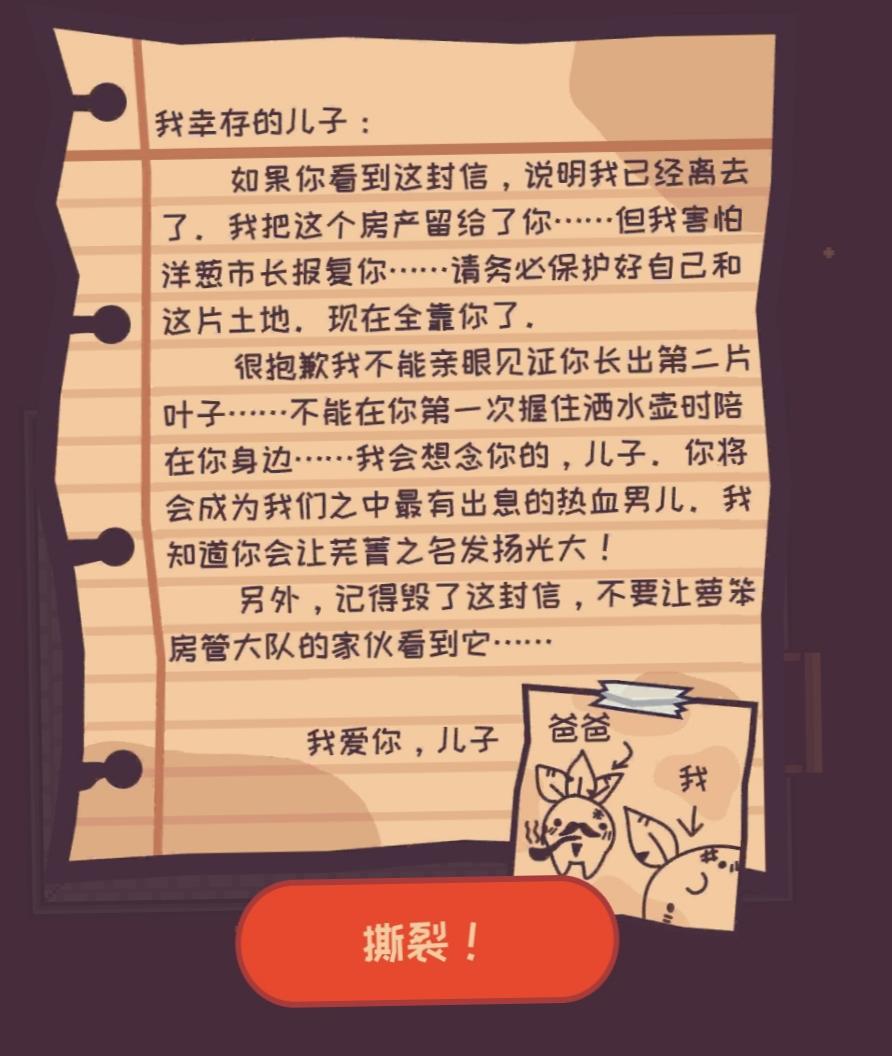 我幸存的儿子：
如果你看到这封信，说明我已经离去
了．我把这个房产留给了你……但我害怕
洋葱市长报复你……请务必保护好自己和
这片土地．现在全靠你了．
很抱歉我不能亲眼见证你长出第二片
叶子……不能在你第一次握住洒水壶时陪
在你身边……我会想念你的，儿子．你将
会成为我们之中最有出息的热血男儿．我
知道你会让芜菁之名发扬光大！
另外，记得毁了这封信，不要让萝笨
房管大队的家伙看到它……
我爱你，儿子
爸爸
我
撕裂！